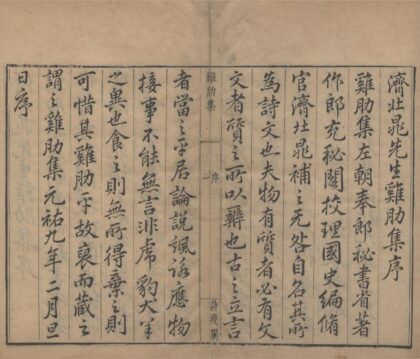 濟北晁先生雞肋集序
雞肋集左朝奉郎秘書省著
作郎充秘閣校理國史編脩
官濟北晁補之无咎自名其所
為詩文也夫物有質者必有文
文者質之所以辨也古之立言
雞肋集 序 一 詩瘦閣
者當之平居論說諷詠應物
接事不能無言非虎豹犬羊
之異也食之則無所得棄之則
可惜其雞肋乎故裒而藏之
謂之雞肋集元祐九年二月旦
日序